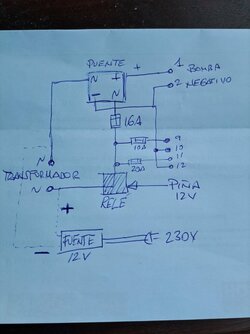 PUENTE
+
1 BOMBA
N + N
-
2 NEGATIVO
16A
10A
9
10
11
20A
12
N
TRANSFORMADOR
N
PIÑA
12V
RELE
+
FUENTE
230V
12V
-